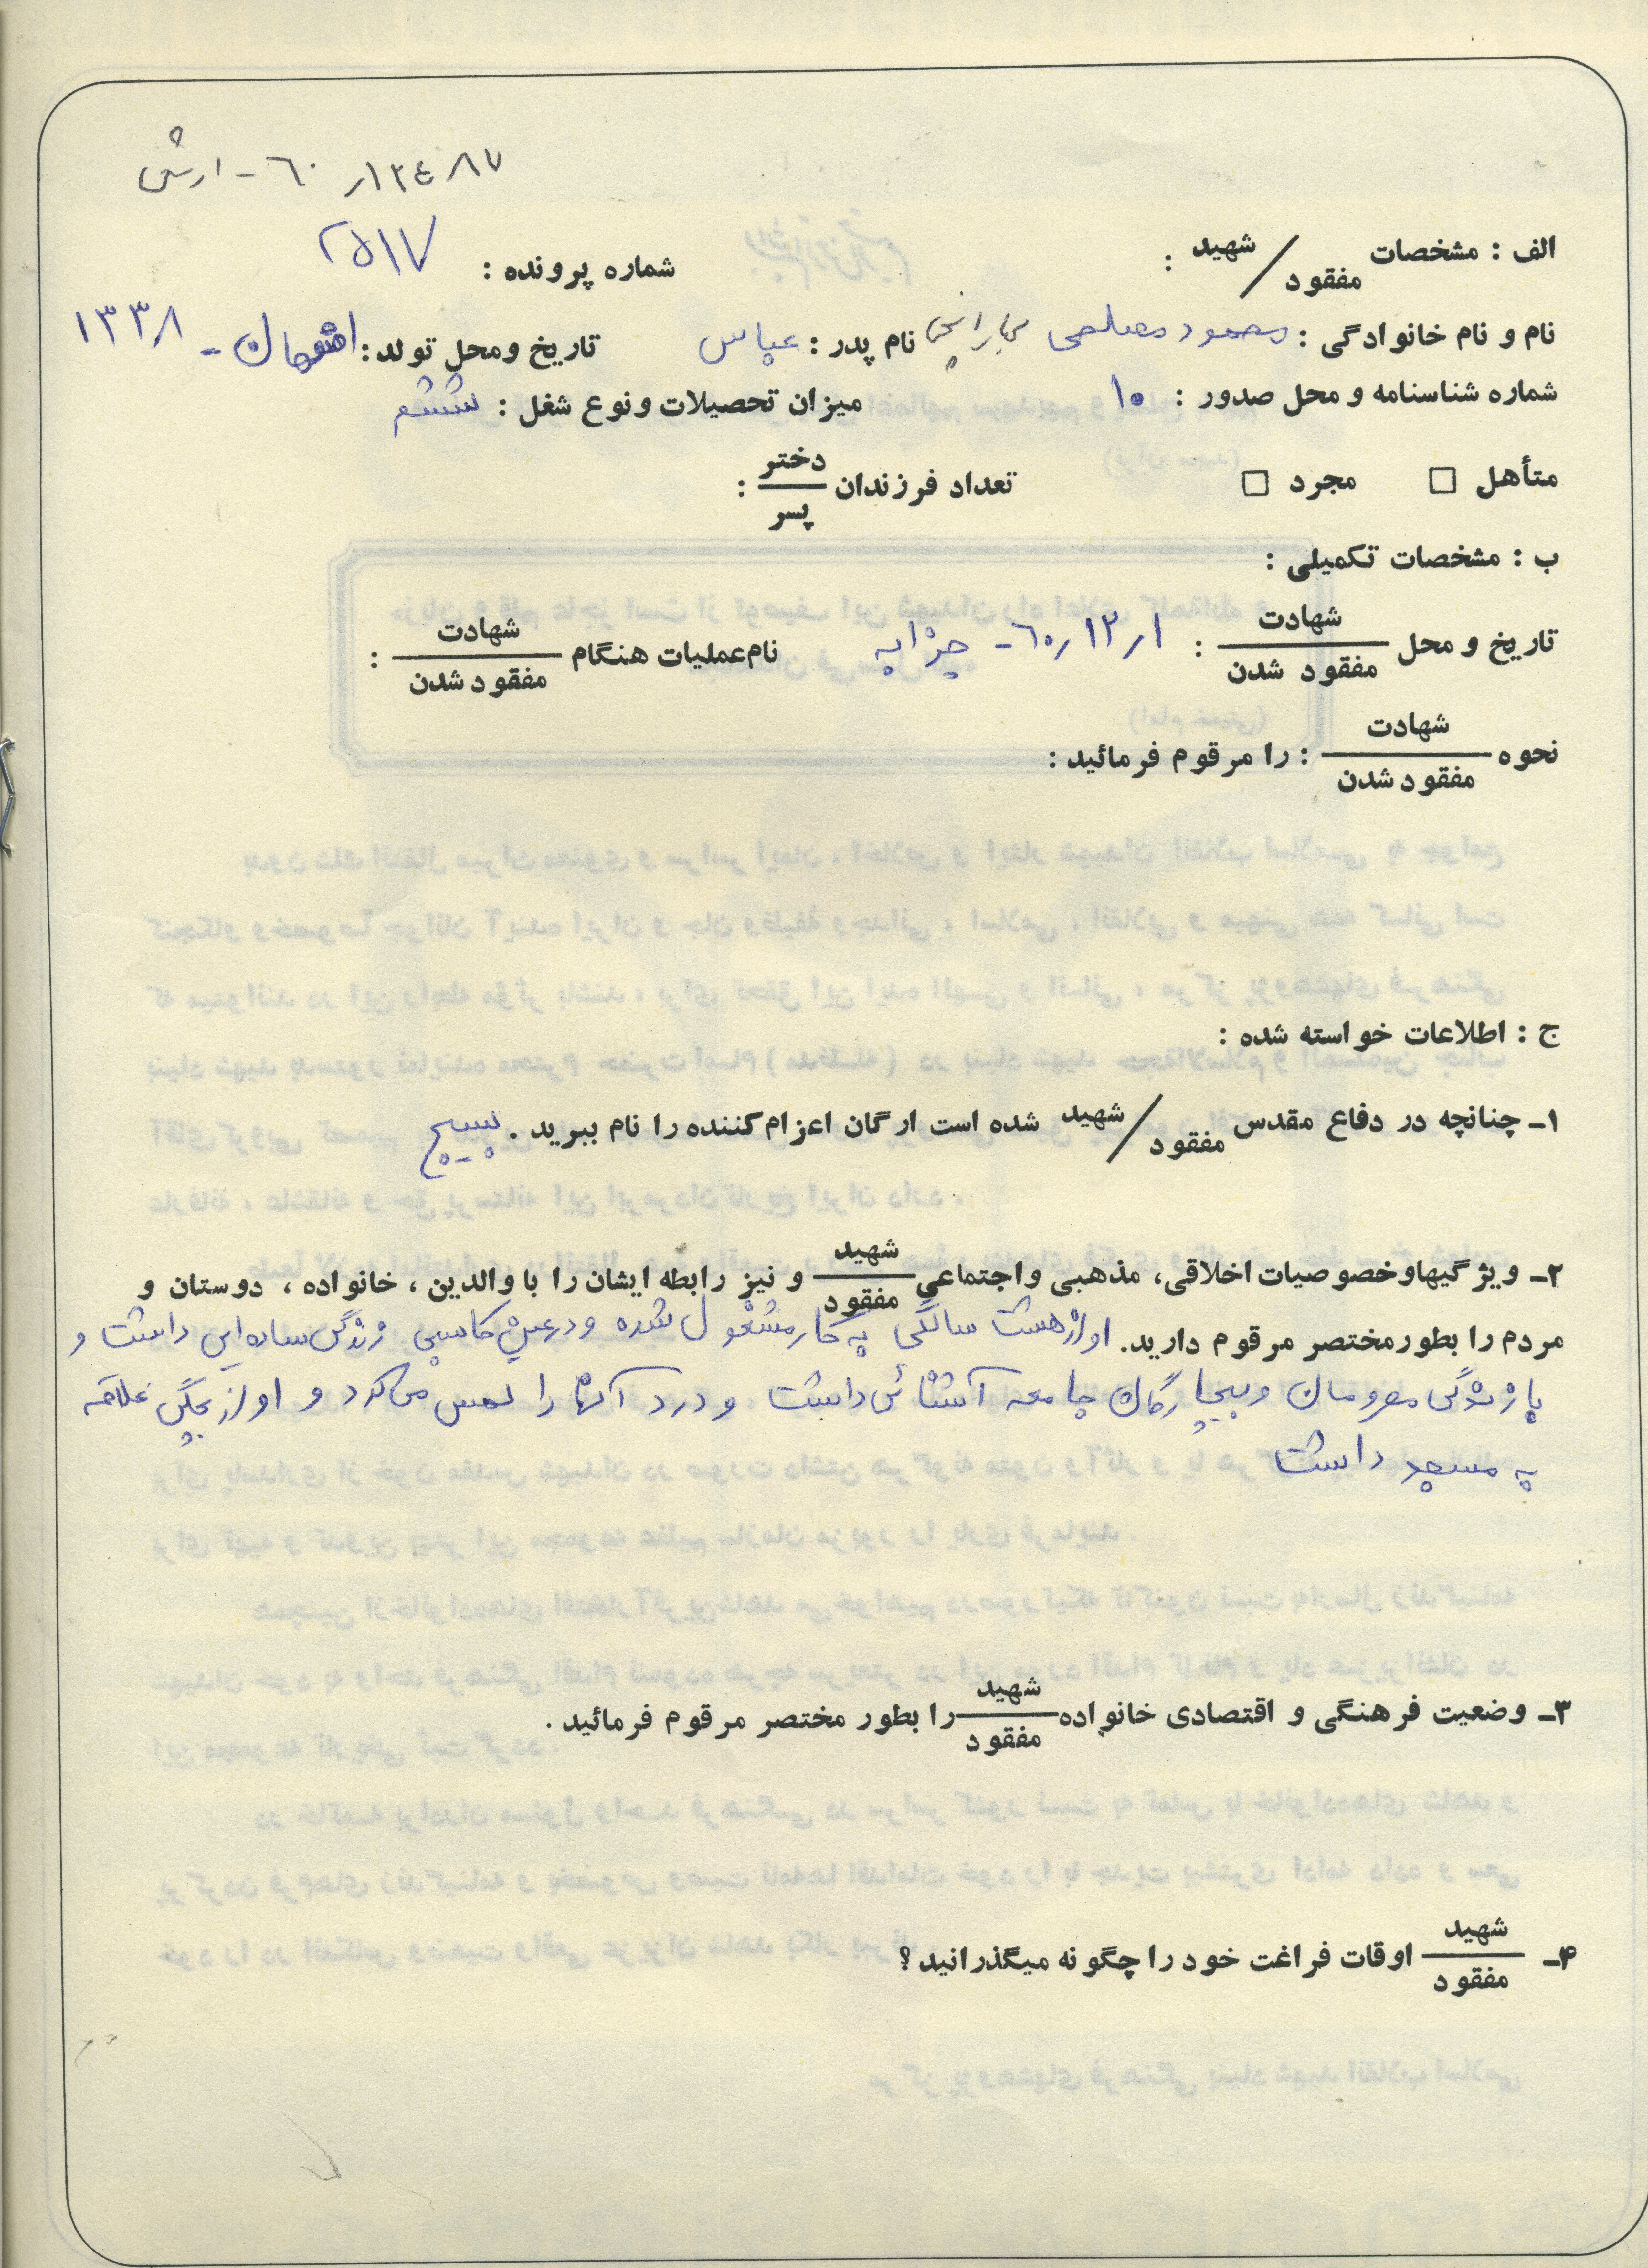 ۶۰ - ارتش ۱۳۴۸۷ر
الف : مشخصات شهید / مفقود :
شماره پرونده : ۲۵۱۷
نام و نام خانوادگی : محمود مصلحی نام پدر : عباس تاریخ و محل تولد : اصفهان - ۱۳۳۸
شماره شناسنامه و محل صدور : ۱۰ میزان تحصیلات و نوع شغل : ششم
متأهل □ مجرد □ تعداد فرزندان دختر / پسر :
ب : مشخصات تکمیلی :
تاریخ و محل شهادت / مفقود شدن : ۱ر۱۲ر۶۰ - چزابه نام عملیات هنگام شهادت / مفقود شدن :
نحوه شهادت / مفقود شدن : را مرقوم فرمائید :
ج : اطلاعات خواسته شده :
۱ـ چنانچه در دفاع مقدس شهید / مفقود شده است ارگان اعزام کننده را نام ببرید . بسیج
۲ـ ویژگیها و خصوصیات اخلاقی، مذهبی و اجتماعی شهید / مفقود و نیز رابطه ایشان را با والدین ، خانواده ، دوستان و
مردم را بطور مختصر مرقوم دارید. او از هشت سالگی به کار مشغول شده و در عین کاسبی زندگی ساده ای داشت و
با زندگی محرومان و بیچارگان جامعه آشنائی داشت و درد آنها را لمس می کرد و او از بچگی علاقه
به مسجد داشت
۳ـ وضعیت فرهنگی و اقتصادی خانواده شهید / مفقود را بطور مختصر مرقوم فرمائید .
۴ـ شهید / مفقود اوقات فراغت خود را چگونه میگذرانید ؟